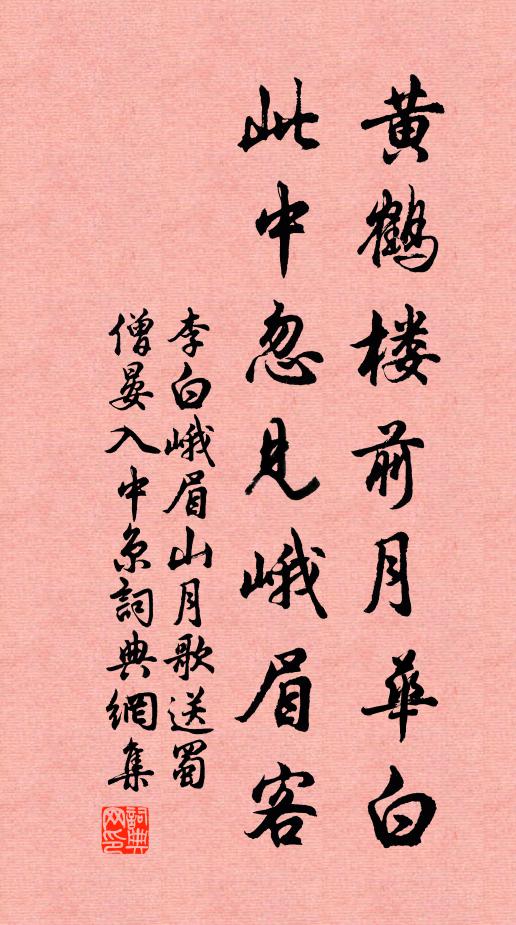 黄鶴楼前月華白
此中忽見峨眉客
李白峨眉山月歌送蜀
僧晏入中京詞典網集
詞典
网印